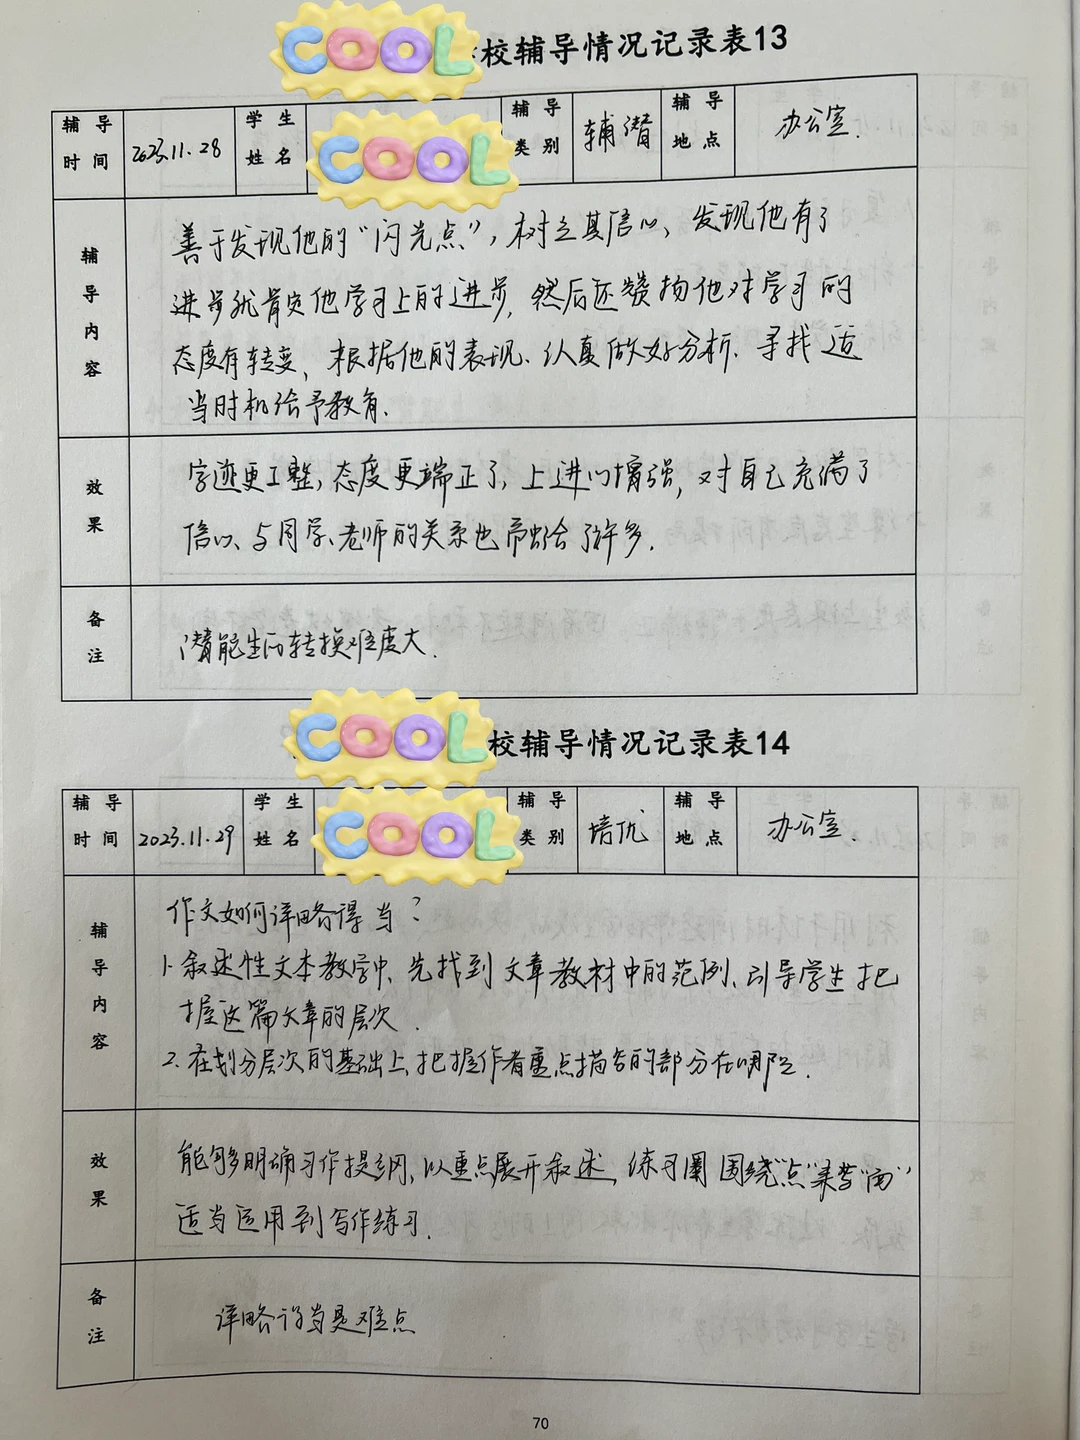 COOL
校辅导情况记录表13
辅导时间 2023.11.28 学生姓名 COOL 辅导类别 辅潜 辅导地点 办公室.
辅导内容
善于发现他的“闪光点”,树立其信心、发现他有了
进步就肯定他学习上的进步,然后还赞扬他对学习的
态度有转变,根据他的表现.认真做好分析.寻找适
当时机给予教育.
效果
字迹更工整,态度更端正了,上进心增强,对自己充满了
信心、与同学、老师的关系也融洽了许多.
备注
潜能生的转换难度大.
COOL
校辅导情况记录表14
辅导时间 2023.11.29 学生姓名 COOL 辅导类别 培优 辅导地点 办公室.
辅导内容
作文如何详略得当?
1.叙述性文本教学中,先找到文章教材中的范例、引导学生把
握这篇文章的层次.
2.在划分层次的基础上,把握作者重点描写的部分在哪段.
效果
能够明确习作提纲,以重点展开叙述,练习围绕“点”来带“面”
适当运用到写作练习.
备注
详略得当是难点
70